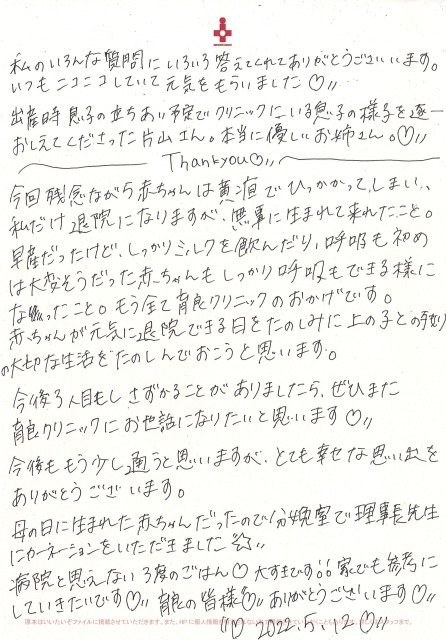 私のいろんな質問にいろいろ答えてくれてありがとうございます。
いつもニコニコしていて元気をもらいました♡〃
出産時息子の立ちあい予定でクリニックにいる息子の様子を逐一
おしえてくださった片山さん。本当に優しいお姉さん。♡〃
Thankyou♡〃
今回残念ながら赤ちゃんは黄疸でひっかかってしまい、
私だけ退院になりますが、無事に生まれて来れたこと。
早産だったけど、しっかりミルクを飲んだり、呼吸も初め
は大変そうだった赤ちゃんもしっかり呼吸もできる様に
なったこと。もう全て育良クリニックのおかげです。
赤ちゃんが元気に退院できる日をたのしみに上の子との残り
の大切な生活をたのしんでおこうと思います。
今後3人目もしさずかることがありましたら、ぜひまた
育良クリニックにお世話になりたいと思います♡〃
今後ももう少し通うと思いますが、とても幸せな思い出を
ありがとうございます。
母の日に生まれた赤ちゃんだったので分娩室で理事長先生
にカーネーションをいただきました☆〃
病院と思えない3度のごはん♡大すきです!!家でも参考に
していきたいです♡〃育良の皆様♡〃ありがとうございました♡〃
2022.5.12♡〃